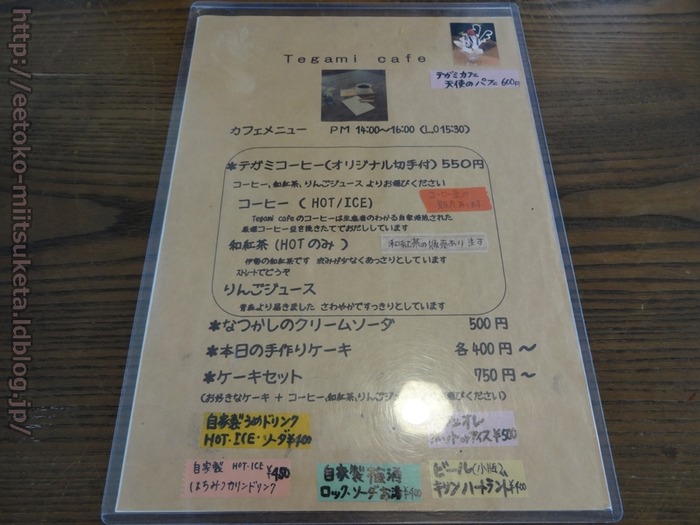 http://eetoko-miitsuketa.ldblog.jp/
Tegami cafe
テガミカフェ
天使のパフェ 600円
カフェメニュー PM 14:00～16:00 (L.O15:30)
＊テガミコーヒー(オリジナル切手付) 550円
コーヒー,和紅茶,りんごジュース よりお選びください
コーヒー (HOT/ICE)
コーヒー豆の
Tegami cafeのコーヒーは生産者のわかる自家焙煎された
厳選コーヒー豆を挽きたてでおだししています
和紅茶(HOTのみ)
和紅茶の販売あります
伊勢の和紅茶です 渋みが少なくあっさりとしています
ストレートでどうぞ
りんごジュース
青森より届きました さわやかですっきりとしています
＊なつかしのクリームソーダ 500円
＊本日の手作りケーキ 各400円～
＊ケーキセット 750円～
(お好きなケーキ + コーヒー,和紅茶,りんごジュース 選びください)
自家製うめドリンク
HOT・ICE・ソーダ ¥400
オレ
アイス¥500
自家製 HOT・ICE ¥450
はちみつカリンドリンク
自家製梅酒
ロック・ソーダお湯
ビール(小瓶)
キリンハートランド